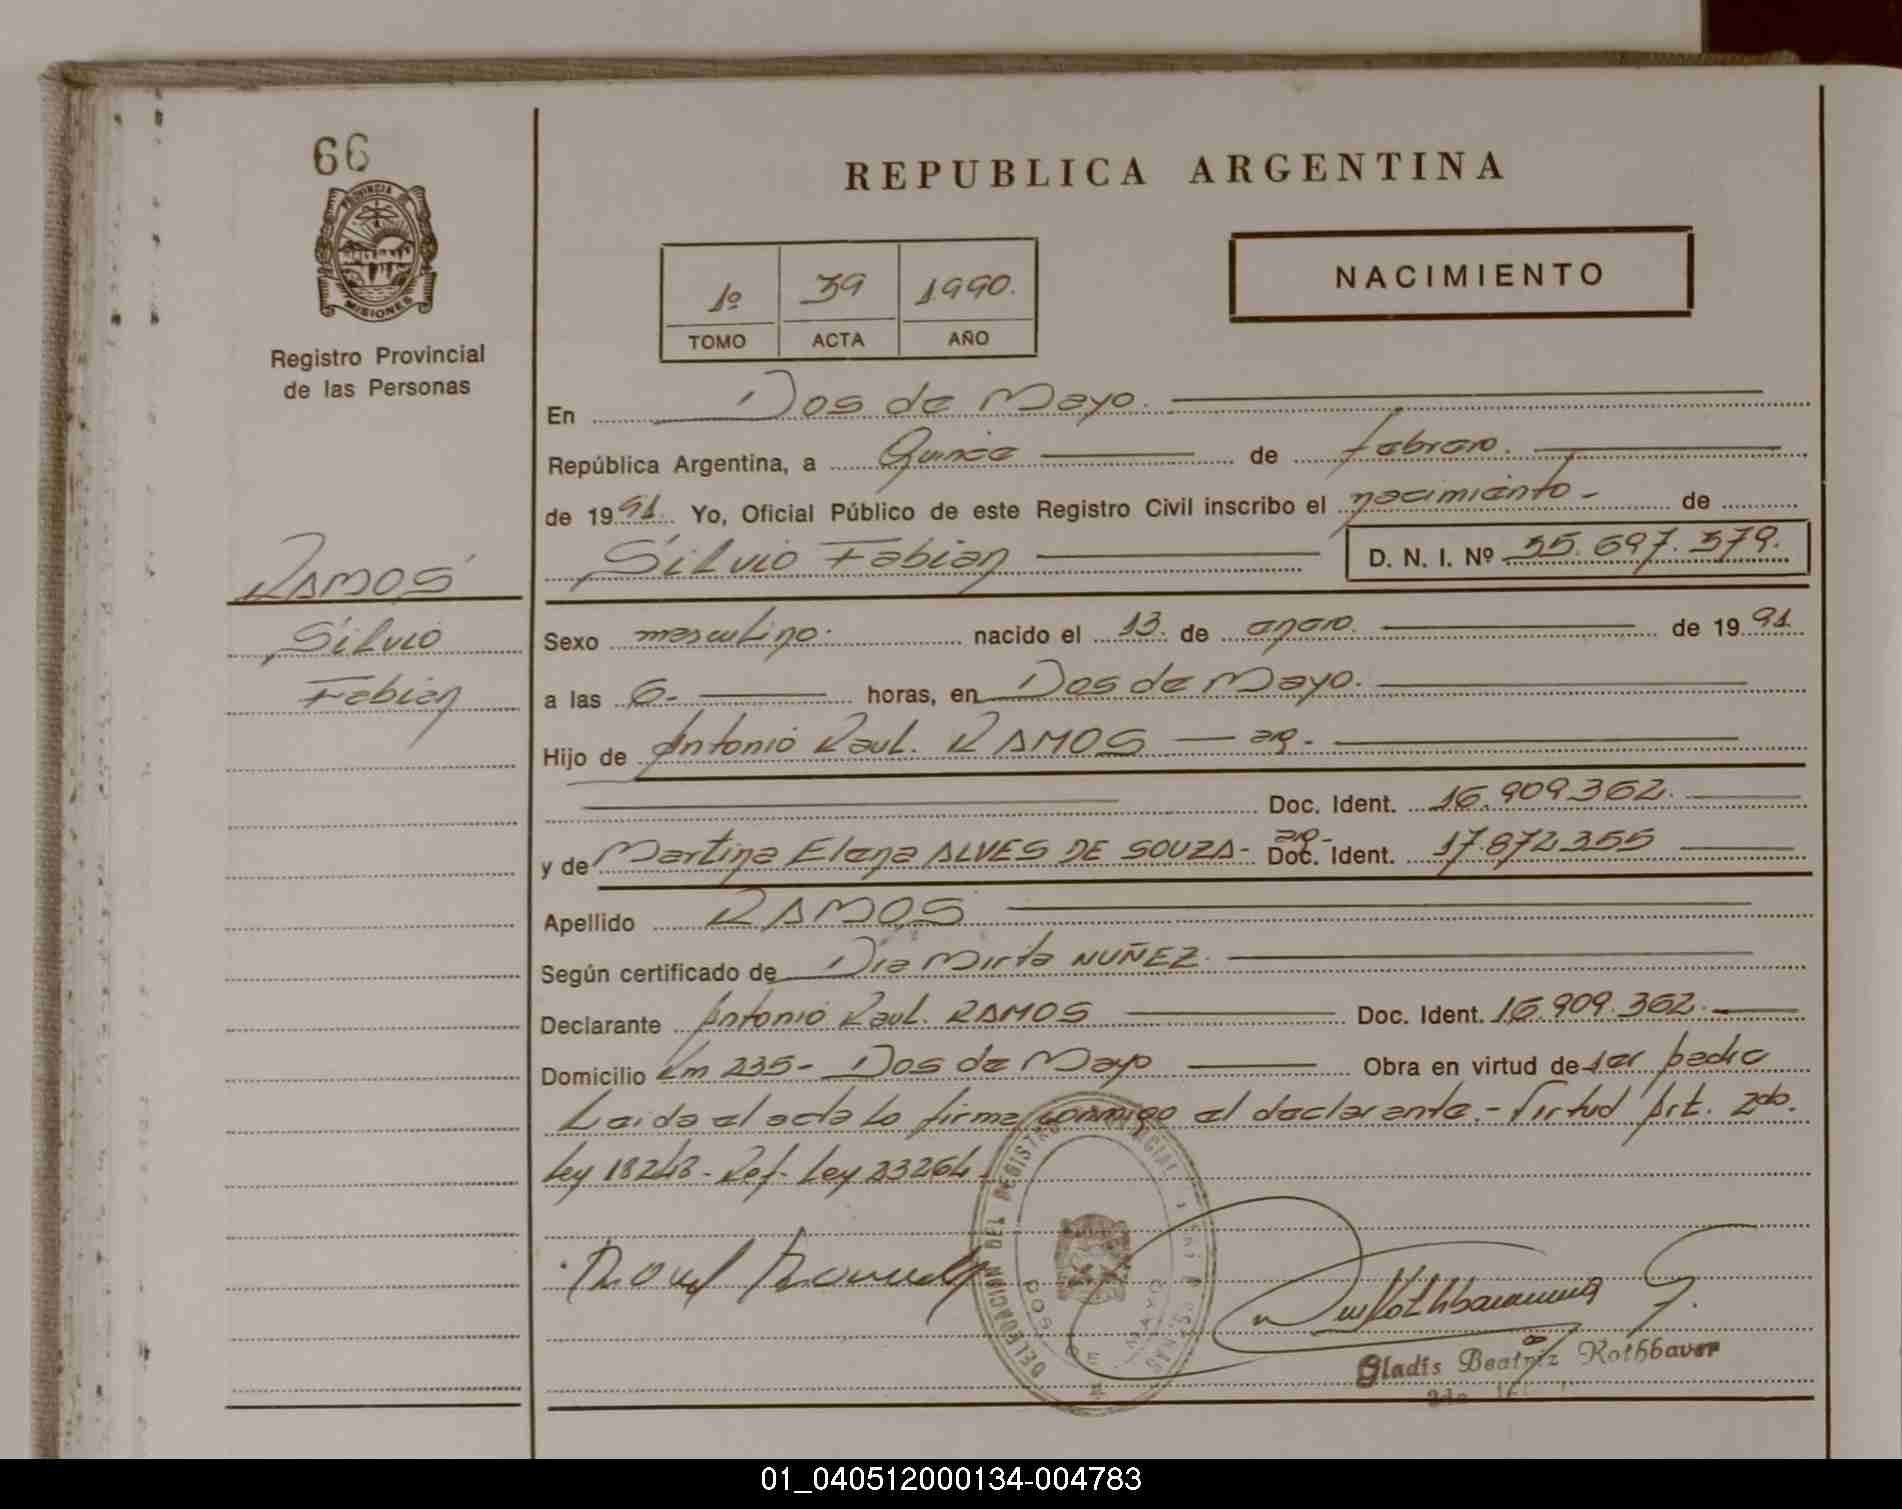 66
PROVINCIA DE
MISIONES
Registro Provincial
de las Personas
RAMOS
Silvio
Fabian
REPUBLICA ARGENTINA
1º 39 1990.
TOMO ACTA AÑO
NACIMIENTO
En Dos de Mayo.
República Argentina, a Quince de febrero.
de 1991. Yo, Oficial Público de este Registro Civil inscribo el nacimiento - de
Silvio Fabian D. N. I. Nº 35.697.379.
Sexo masculino. nacido el 13. de enero. de 1991.
a las 6- horas, en Dos de Mayo.
Hijo de Antonio Raul. RAMOS — arg.
Doc. Ident. 16.909.362.
y de Martina Elena ALVES DE SOUZA- arg- Doc. Ident. 17.872.355
Apellido RAMOS
Según certificado de Dra Mirta NUÑEZ.
Declarante Antonio Raul. RAMOS Doc. Ident. 16.909.362.
Domicilio Km 235- Dos de Mayo Obra en virtud de ser padre
Leida el acta lo firma conmigo el declarante.- Virtud Art. 2do.
Ley 18248- Ref- Ley 23264-
DELEGACION DEL REGISTRO PROVINCIAL DE LAS PERSONAS
DOS DE MAYO
Raul Ramos
Rothbaver G.
Gladis Beatriz Rothbaver
01_040512000134-004783